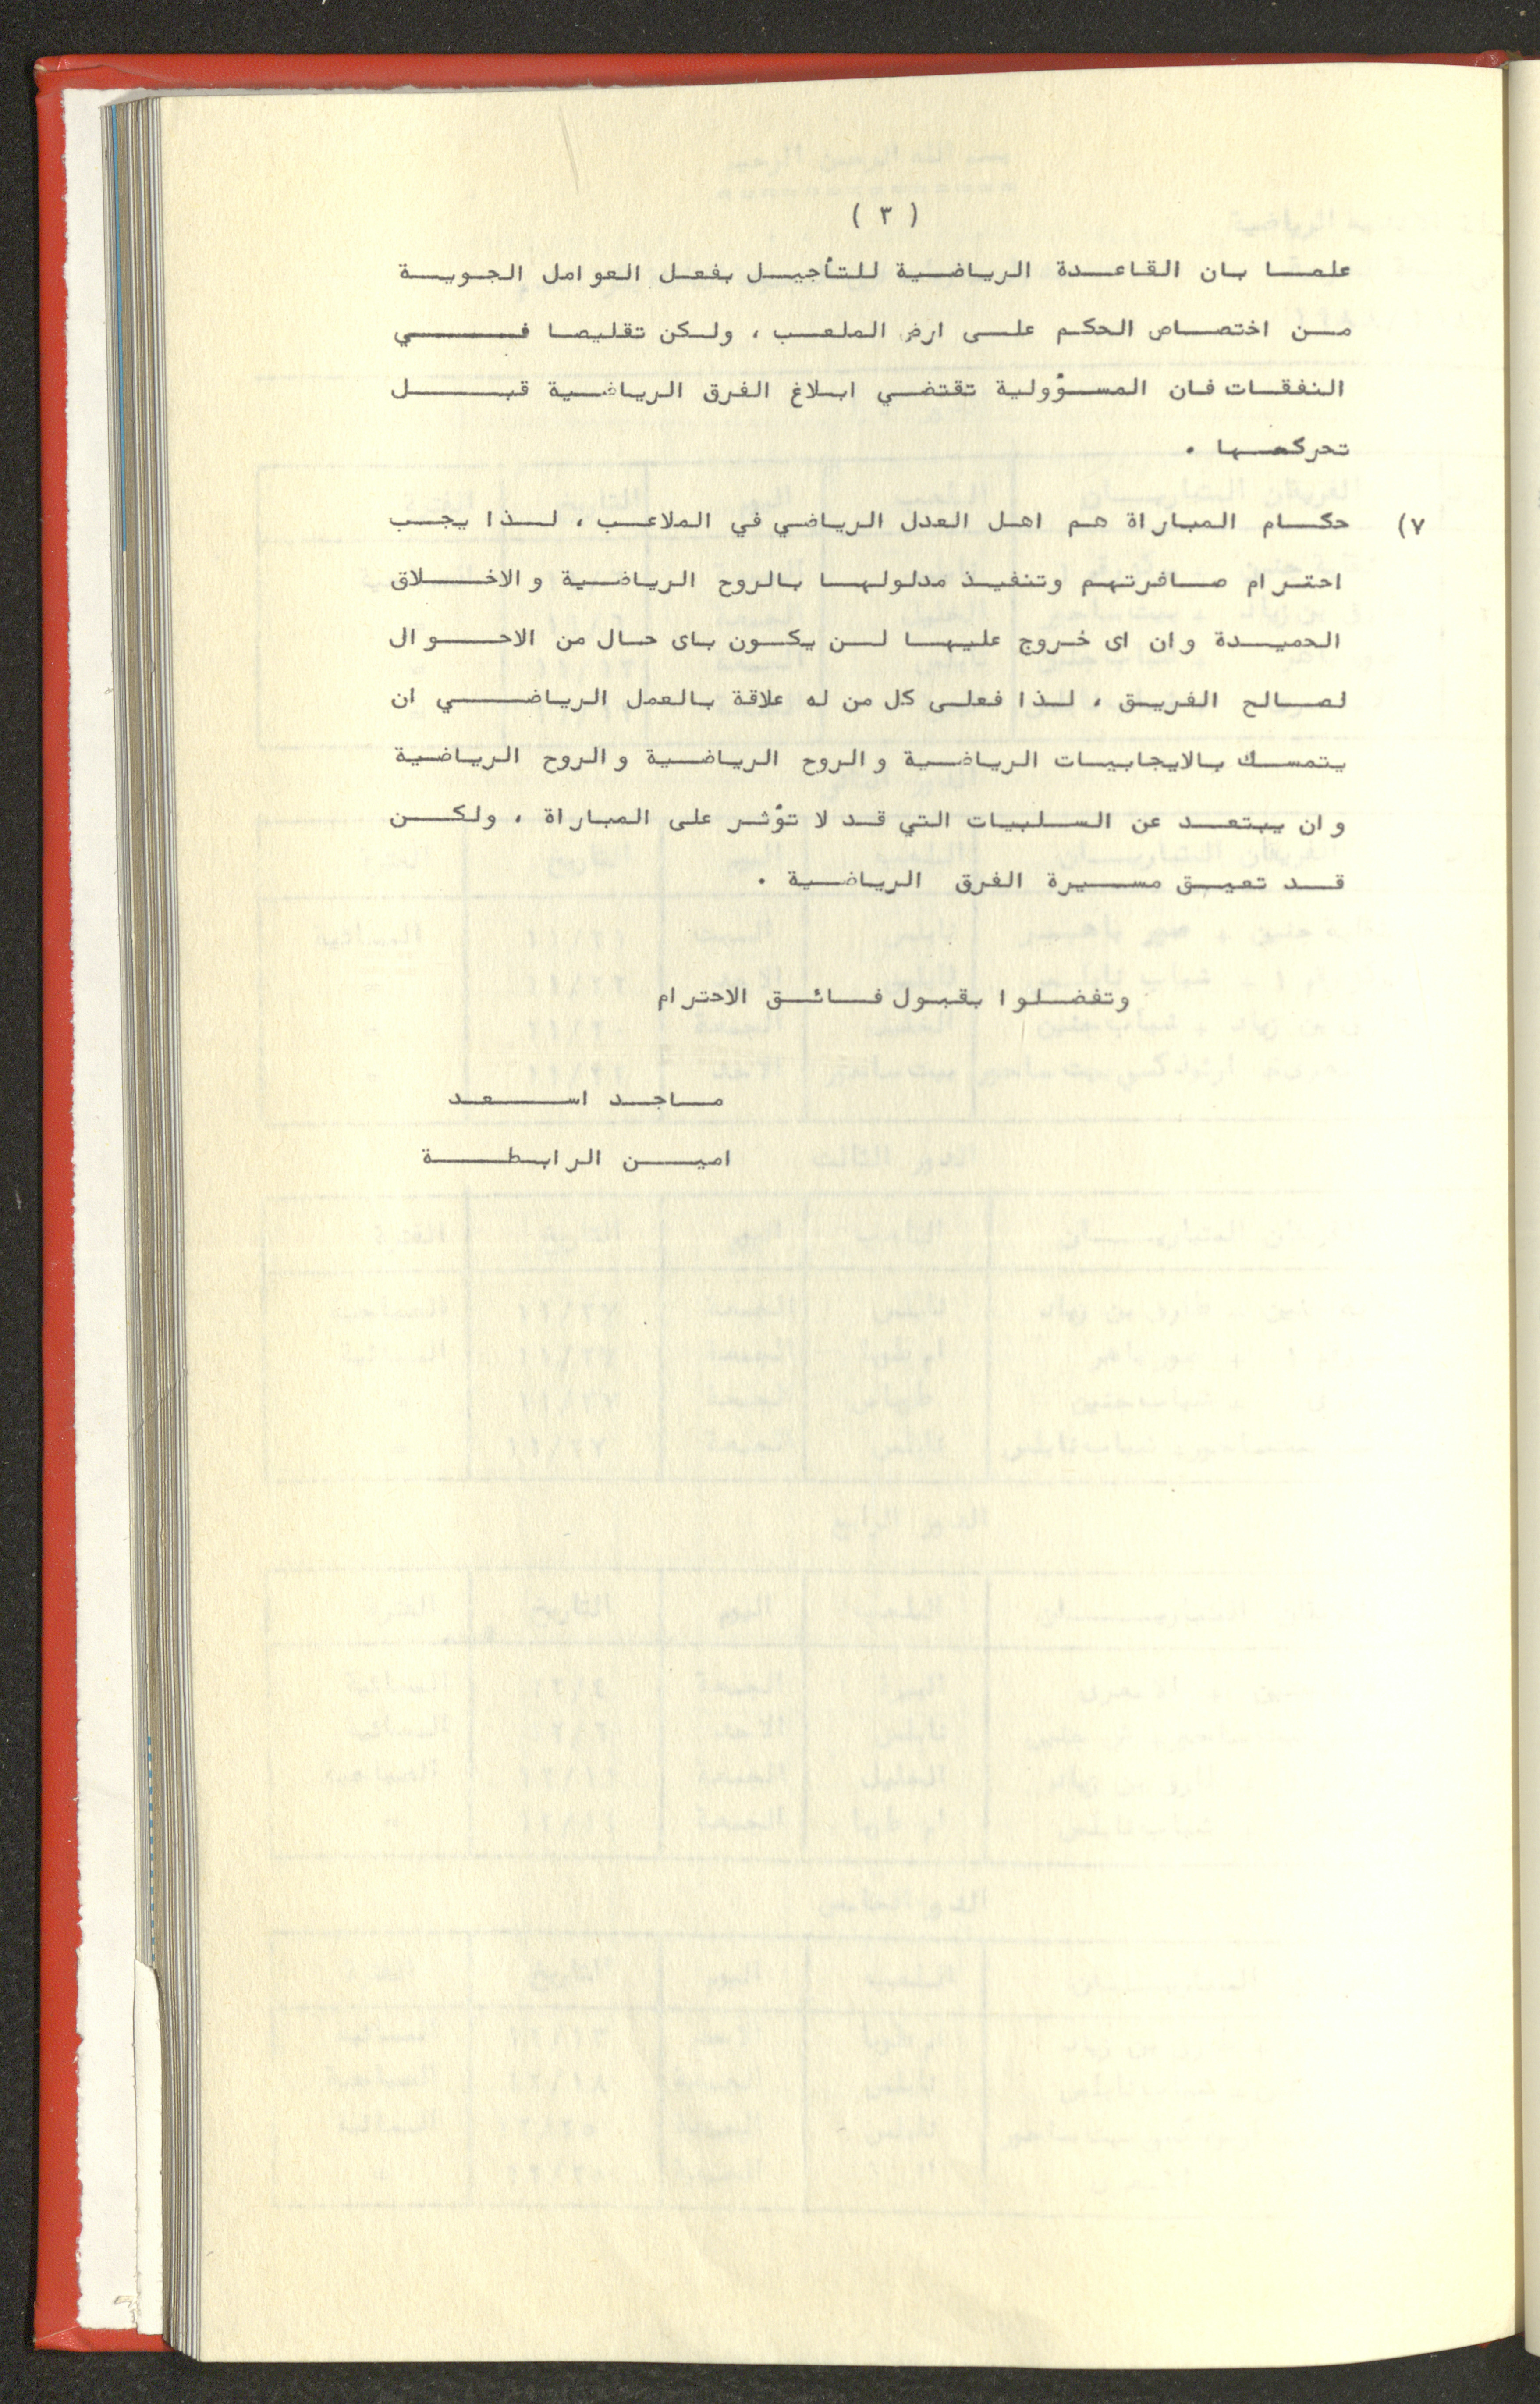 ( ٣ )
علما بان القاعدة الرياضية للتأجيل بفعل العوامل الجوية
من اختصاص الحكم على ارض الملعب ، ولكن تقليصا في
النفقات فان المسؤولية تقتضي ابلاغ الفرق الرياضية قبل
تحركها .
٧) حكام المباراة هم اهل العدل الرياضي في الملاعب ، لذا يجب
احترام صافرتهم وتنفيذ مدلولها بالروح الرياضية والاخلاق
الحميدة وان اى خروج عليها لن يكون باى حال من الاحوال
لصالح الفريق ، لذا فعلى كل من له علاقة بالعمل الرياضي ان
يتمسك بالايجابيات الرياضية والروح الرياضية والروح الرياضية
وان يبتعد عن السلبيات التي قد لا تؤثر على المباراة ، ولكن
قد تعيق مسيرة الفرق الرياضية .
وتفضلوا بقبول فائق الاحترام
ماجد اسعد
امين الرابطة